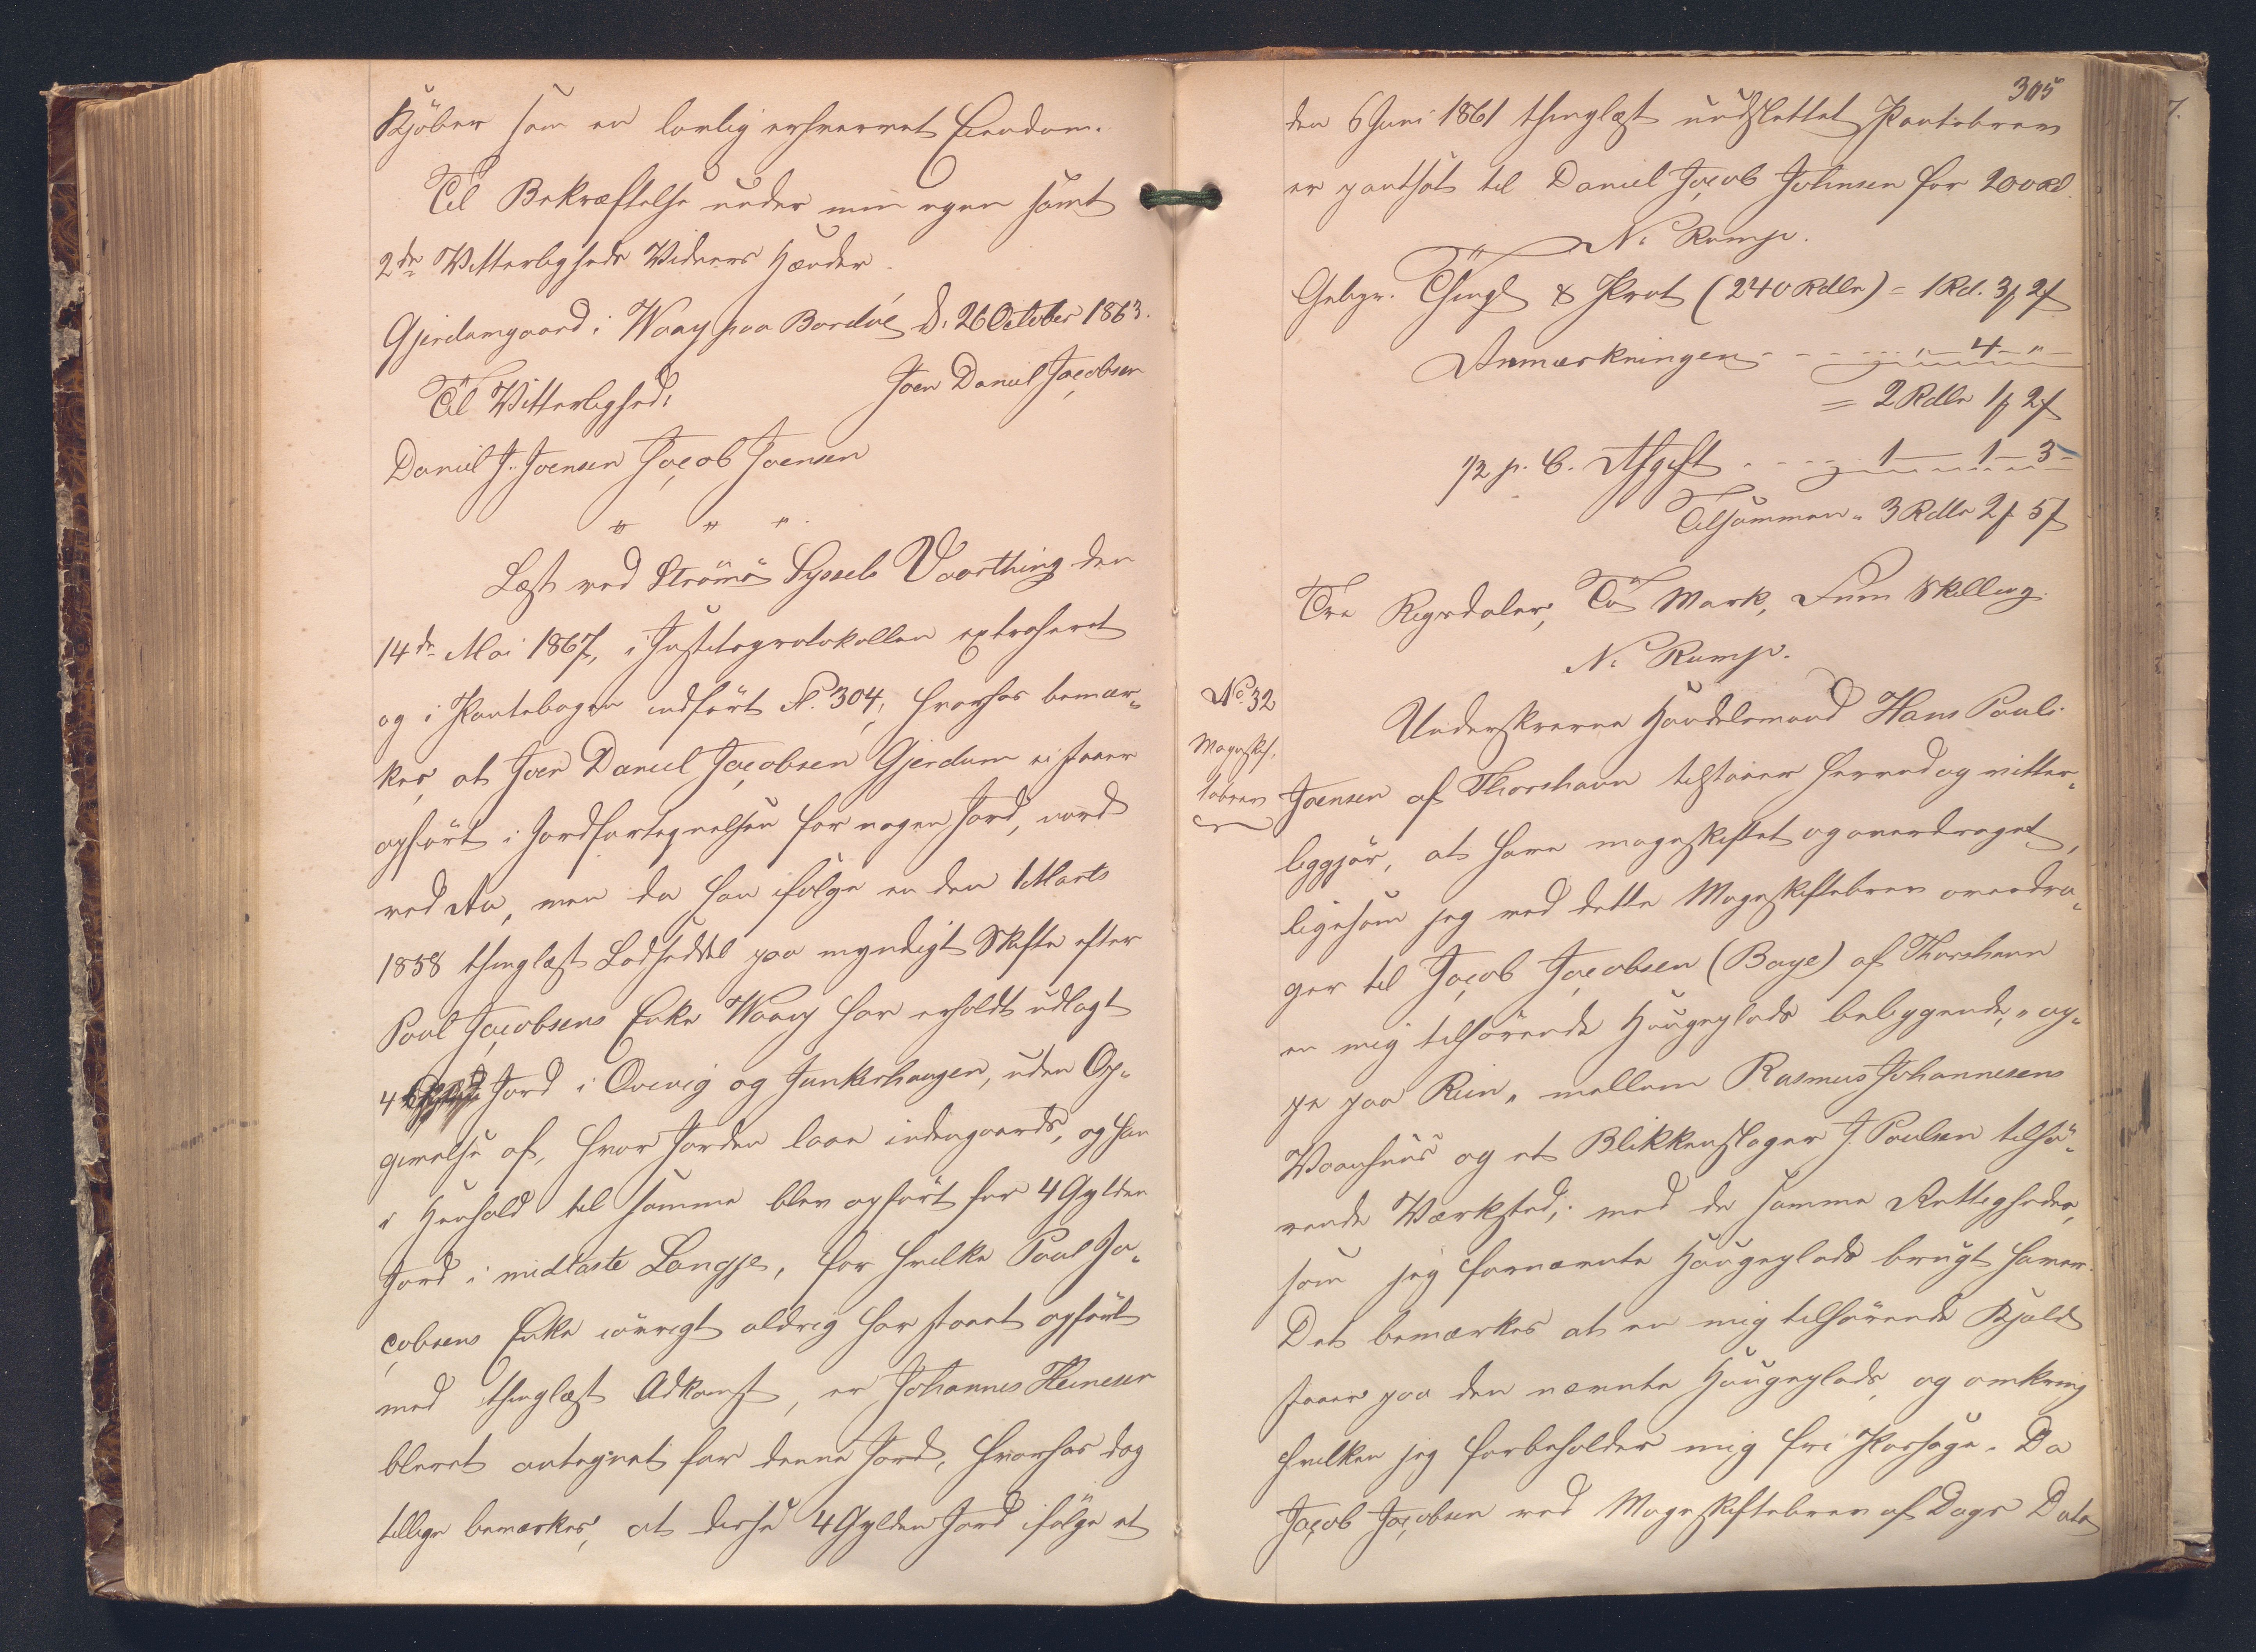 Kjöber som en lovlig erhvervet Eiendom.
Til Bekræftelse under min egen samt
2de Vitterligheds Vidners Hænder.
Gjerdumgaard i Waag paa Bordöe D. 26 October 1863.
Joen Daniel Jacobsen
Til Vitterlighed:
Daniel J. Joensen Jacob Joensen
" " "
Læst ved Strömö Syssels Vaarthing den
14de Mai 1867, i Justitsprotokollen extraheret
og i Pantebogen indfört P. 304, hvorhos bemær-
kes, at Joen Daniel Jacobsen Gjerdum ei staaer
opfört i Jordfortegnelsen for nogen Jord, nord
ved Aa, men da han ifølge en den 1 Marts
1858 thinglæst Lodseddel paa myndigt Skifte efter
Poul Jacobsens Enke Waag har erholdt udlagt
4 Jord i Qvivig og Junkershaugen, uden Op-
givelse af, hvor Jorden laae indengaards, og han
i Henhold til samme blev opfört for 4 Gylden
Jord i midtaste Langje, for hvilke Poul Ja-
cobsens Enke iövrigt aldrig har staaet opfört
med thinglæst Adkomst, er Johannes Heinesen
blevet antegnet for denne Jord, hvorhos dog
tillige bemærkes, at disse 4 Gylden Jord ifölge et
305
den 6 Juni 1861 thinglæst uudslettet Pantebrev
er pantsat til Daniel Jacob Johnsen for 200 Rd.
N. Rump.
Gebyr. Thingl & Prot (240 Rdlr) = 1 Rd. 3 ₻ 2 ß
Anmærkningen - - - " - 4 - " -
= 2 Rdlr 1 ₻ 2 ß
1/2 p. C. Afgift - - - 1 - 1 - 3 -
Tilsammen = 3 Rdlr 2 ₻ 5 ß
Tre Rigsdaler, To Mark, Fem Skilling.
N. Rump.
No. 32
Mageskif-
tebrev
Underskrevne Handelsmand Hans Pauli
Joensen af Thorshavn tilstaaer herved og vitter-
liggjör, at have mageskiftet og overdraget,
ligesom jeg ved dette Mageskiftebrev overdra-
ger til Jacob Jacobsen (Baye) af Thorshavn
en mig tilhörende Haugeplads beliggende, "op-
pe paa Rein" mellem Rasmus Johannesens
Vaanhuus og et Blikkenslager J. Poulsen tilhö-
rende Værksted, med de samme Rettigheder,
som jeg fornævnte Haugeplads brugt haver.
Det bemærkes at en mig tilhörende Kjald
staaer paa den nævnte Haugeplads, og omkring
hvilken jeg forbeholder mig fri Passage. Da
Jacob Jacobsen ved Mageskiftebrev af Dags Dato